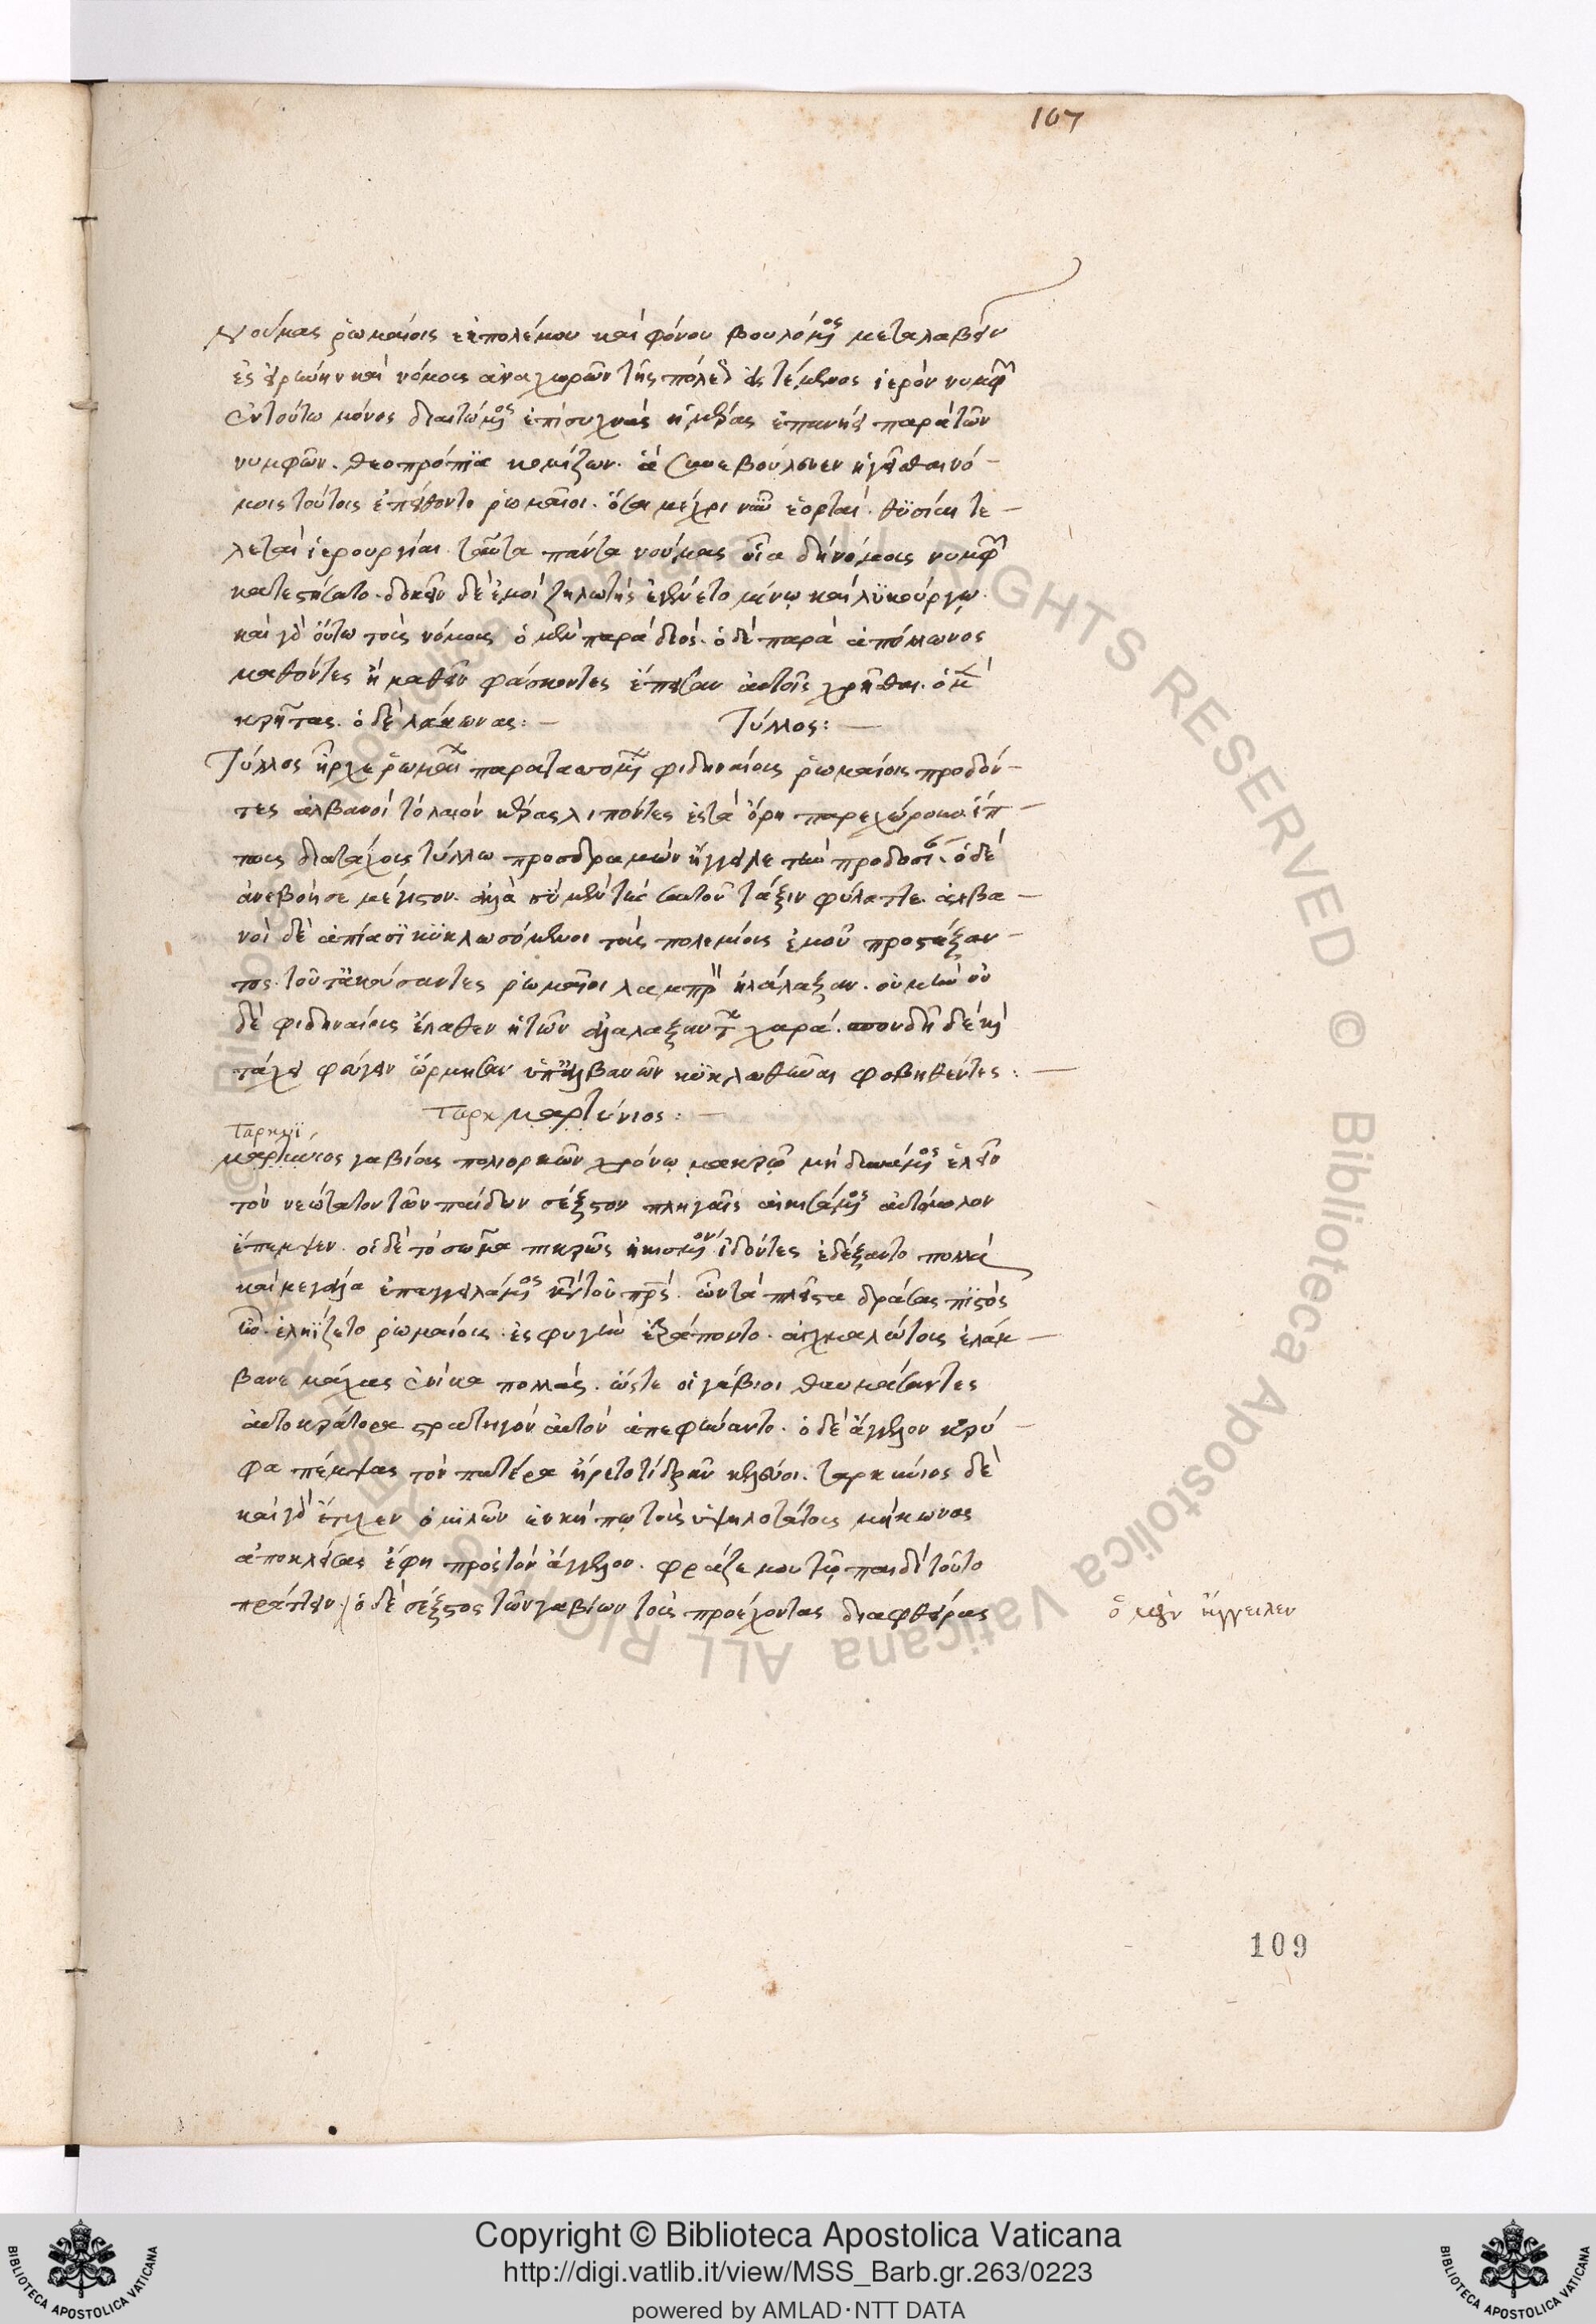 107
Νούμας ῥωμαίοις ἐκ πολέμου καὶ φόνου βουλόμενος μεταλαβεῖν
ἐς εἰρήνην καὶ νόμοις ἀναχωρῶν τῆς πόλεως εἰς τέμενος ἱερὸν νυμφῶν
ἐν τούτω μόνος διαιτώμενος ἐπὶ συχνὰς ἡμέρας ἐπανήει παρὰ τῶν
νυμφῶν. θεοπρόπϊα κομίζων. ἃ συνεβούλευεν ἡγεῖσθαι νό-
μοις τούτοις ἐπείθοντο ῥωμαῖοι. ὅσαι μέχρι νῦν ἑορταὶ. θϋσίαι τε-
λεταὶ ἱερουργίαι. ταῦτα πάντα νούμας οἷα δὴ νόμοις νυμφῶν
κατεστήσατο. δοκεῖν δὲ ἐμοὶ ζηλωτὴς ἐγένετο μίνῳ καὶ λϋκούργῳ.
καὶ γὰρ οὕτω τοὺς νόμους ὁ μὲν παρὰ διός. ὁ δὲ παρὰ ἀπόλλωνος
μαθόντες ἢ μαθεῖν φάσκοντες ἔπεισαν αὐτοῖς χρῆσθαι. ὁ μὲν
κρῆτας. ὁ δὲ λάκωνας:— Τύλλος:—
Τύλλος ἦρχε ῥωμαίων παραταττομένων φιδηναίοις ῥωμαίοις προδόν-
τες ἀλβανοὶ τὸ λαιὸν κέρας λιπόντες ἐς τὰ ὄρη παρεχώρουν. ἱπ-
πεὺς διαταχέως τύλλω προσδραμὼν ἤγγειλε τὴν προδοσίαν. ὁ δὲ
ἀνεβόησε μέγιστον. ἀλλὰ σὺ μὲν τὴν σαυτοῦ τάξιν φύλαττε. ἀλβα-
νοὶ δὲ ἀπίασϊ κϋκλωσόμενοι τοὺς πολεμίους ἐμοῦ προστάξαν-
τος. τοῦτ' ἀκούσαντες ῥωμαῖοι λαμπρὸν ἠλάλαξαν. οὐ μὴν οὐ
δὲ φιδηναίους ἔλαθεν ἡ τῶν ἀλαλαξάντων χαρά. σπουδῆ δὲ καὶ
τάχει φεύγειν ὥρμησαν ὑπ' ἀλβανῶν κϋκλωθῆναι φοβηθέντες:—
Ταρκ μαρτύνιος:—
Ταρκυϊ
μαρκύνιος γαβίους πολιορκῶν χρόνῳ μακρῷ μὴ δυνάμενος ἑλεῖν
τὸν νεώτατον τῶν παίδων σέξτον πληγαῖς αἰκισάμενος αὐτόμολον
ἔπεμψεν. οἱ δὲ τὸ σῶμα πικρῶς ἠκισμένον ἰδόντες ἐδέξαντο πολλὰ
καὶ μεγάλα ἐπαγγειλάμενος κατὰ τοῦ πατρός. ὧν τὰ πλεῖστα δράσας πϊστὸς
ἦν. ἐληΐζετο ῥωμαίους. ἐς φυγὴν ἐτράποντο. αἰχμαλώτους ἐλάμ-
βανε μάχας ἐνίκα πολλὰς. ὥστε οἱ γάβιοι θαυμάσαντες
αὐτοκράτορα στρατηγὸν αὐτὸν ἀπεφήναντο. ὁ δὲ ἄγγελον κρύ-
φα πέμψας τὸν πατέρα ἤρετο τί δρᾶν κελεύοι. ταρκύνιος δὲ
καὶ γὰρ ἔτυχεν ὁμιλῶν ἐν κήπῳ τοὺς ὑψηλοτάτους μήκωνας
ἀποκλείσας ἔφη πρὸς τὸν ἄγγελον. φράζε μου τῷ παιδὶ τοῦτο
πράττειν / ὁ δὲ σέξτος τῶν γαβίων τοὺς προέχοντας διαφθείρας
ὃ μὲν ἤγγειλεν
109
Copyright © Biblioteca Apostolica Vaticana
http://digi.vatlib.it/view/MSS_Barb.gr.263/0223
powered by AMLAD·NTT DATA